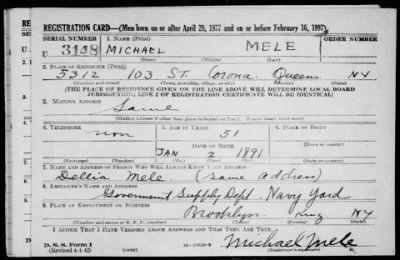 REGISTRATION CARD—(Men born on or after April 28, 1877 and on or before February 16, 1897)
SERIAL NUMBER 1. NAME (Print) ORDER NUMBER
U 3148 MICHAEL MELE
(First) (Middle) (Last)
2. PLACE OF RESIDENCE (Print)
5312 103 ST. Corona. Queens NY
(Number and street) (Town, township, village, or city) (County) (State)
[THE PLACE OF RESIDENCE GIVEN ON THE LINE ABOVE WILL DETERMINE LOCAL BOARD
JURISDICTION; LINE 2 OF REGISTRATION CERTIFICATE WILL BE IDENTICAL]
3. MAILING ADDRESS
Same
4. TELEPHONE 5. AGE IN YEARS
non 51
DATE OF BIRTH
JAN 2 1891
(Mo.) (Day) (Yr.)
7. NAME AND ADDRESS OF PERSON WHO WILL ALWAYS KNOW YOUR ADDRESS
Dellia Mele (same address)
8. EMPLOYER'S NAME AND ADDRESS
Government Supply Dept. Navy Yard
9. PLACE OF EMPLOYMENT OR BUSINESS
Brooklyn. King NY
(County) (State)
I AFFIRM THAT I HAVE VERIFIED ABOVE ANSWERS AND THAT THEY ARE TRUE.
D. S. S. Form 1
(Revised 4-1-42)
Michael Mele